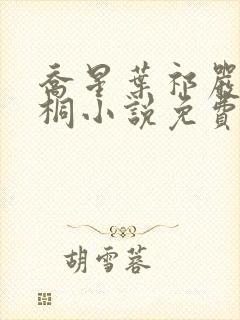 喬星葉祁嚴
桐小說免費
胡雪蓉